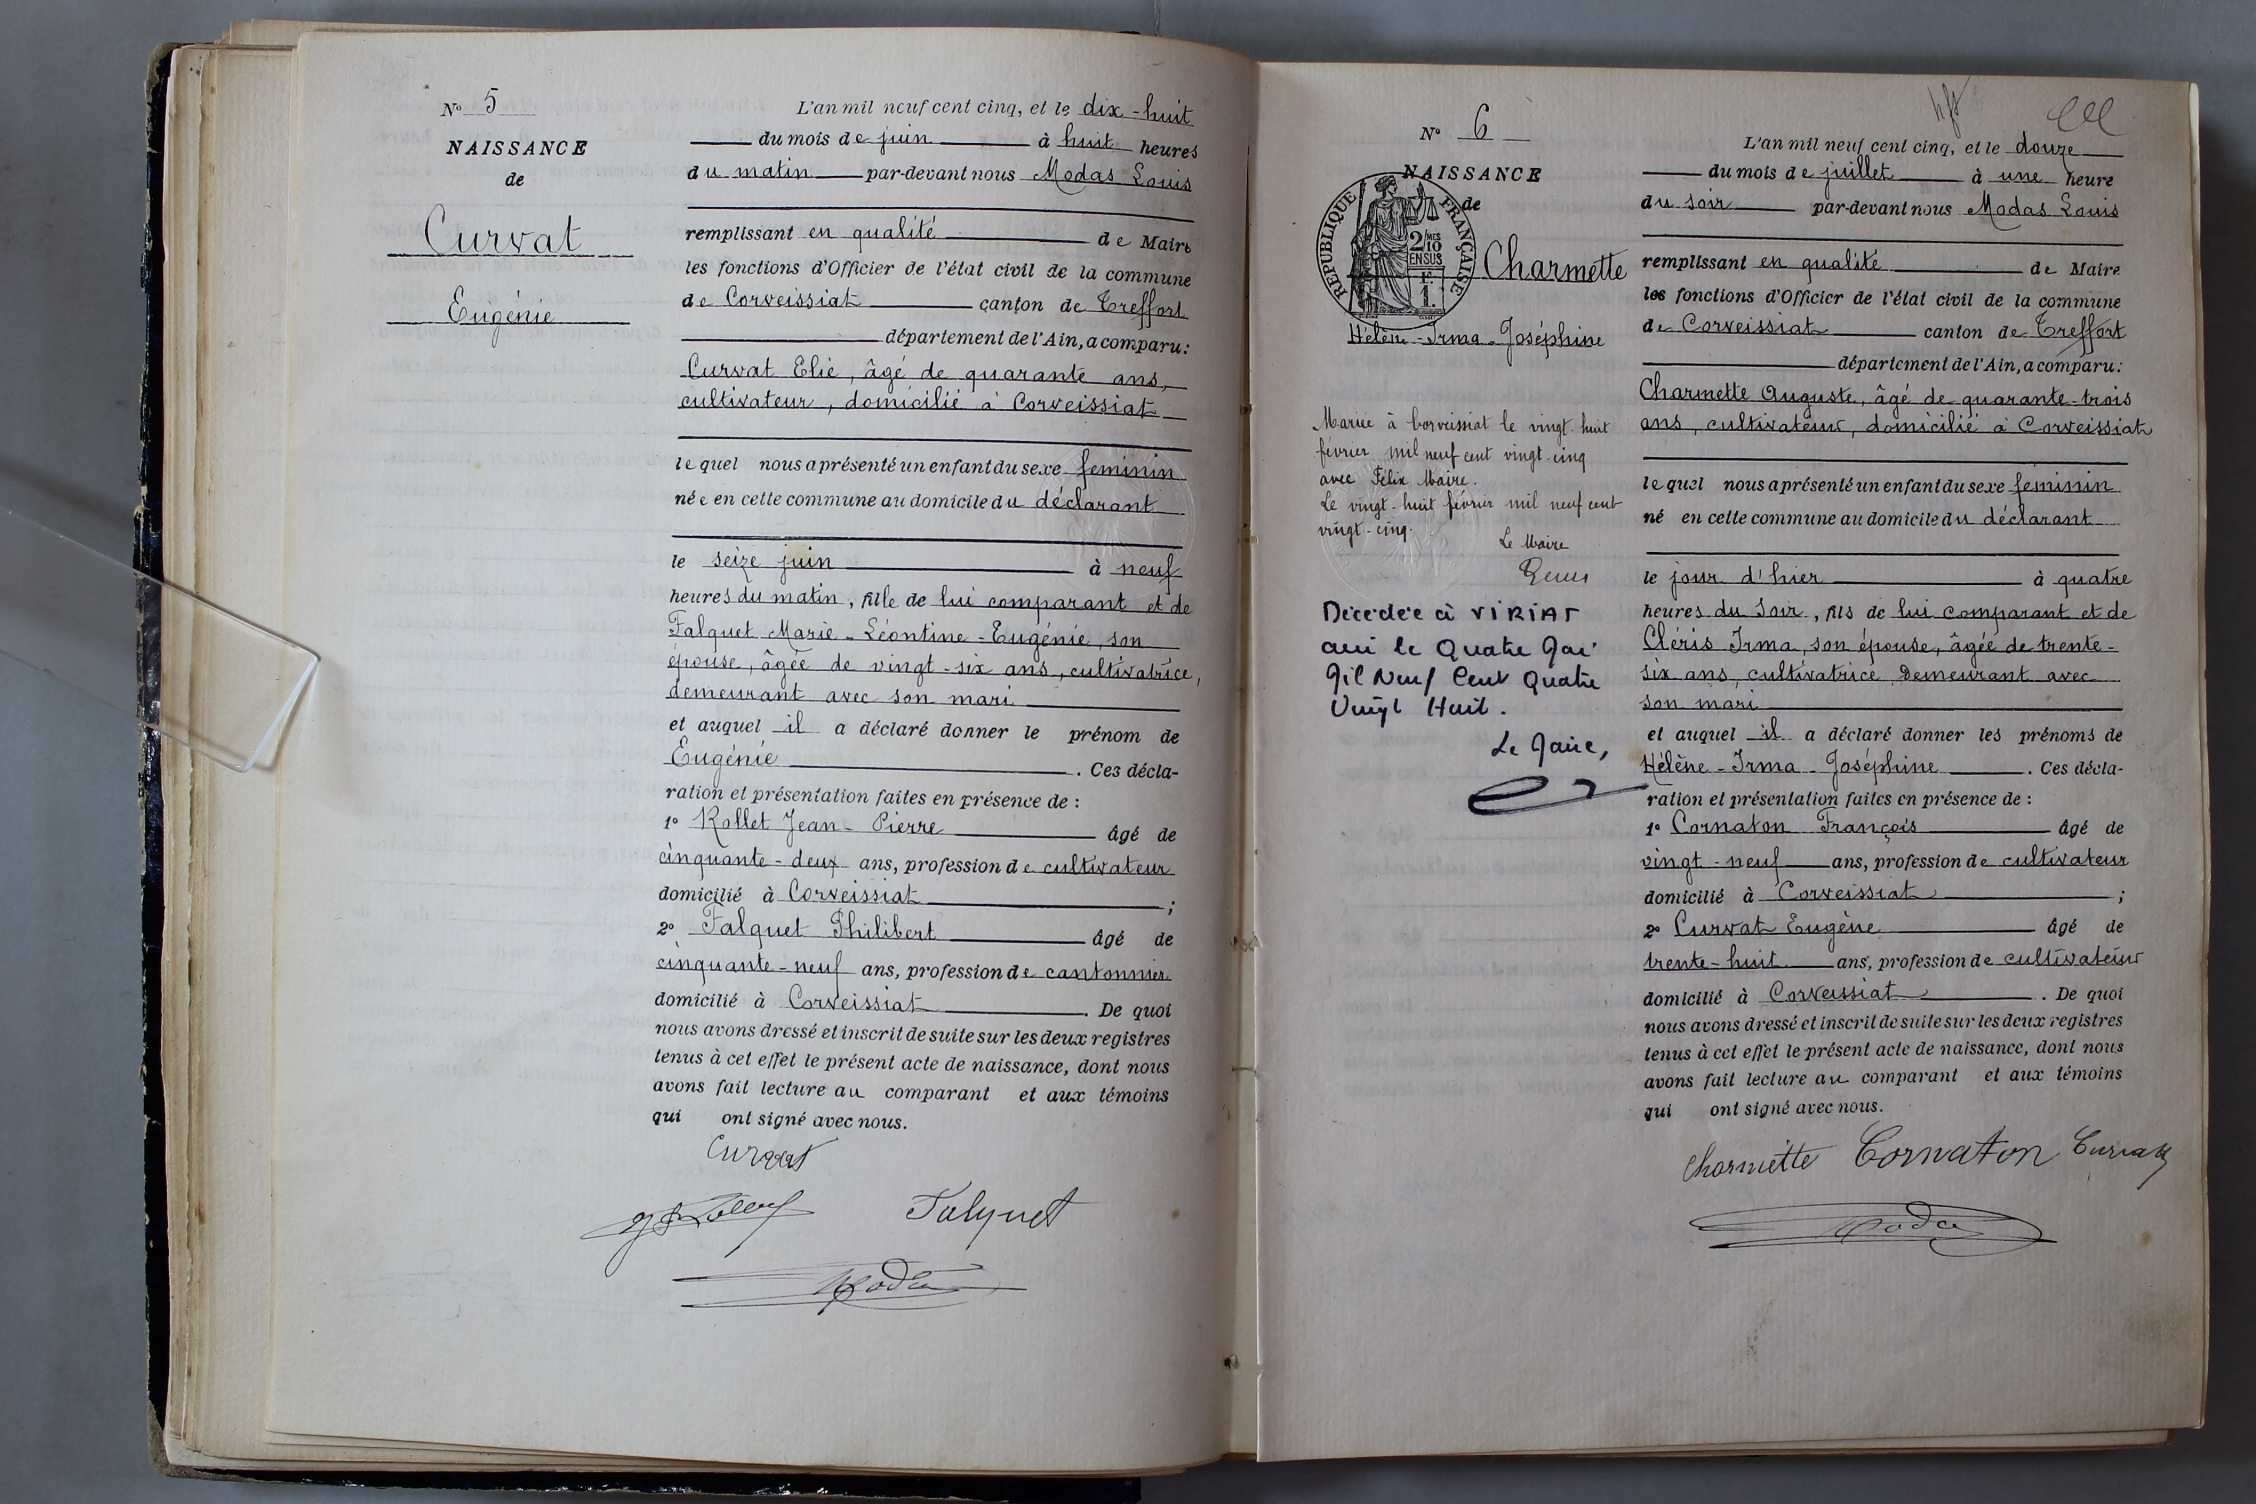 N° 5
NAISSANCE
de
Curvat
Eugénie
L'an mil neuf cent cinq, et le dix-huit
du mois de juin à huit heures
du matin par-devant nous Modas Louis
remplissant en qualité de Maire
les fonctions d'Officier de l'état civil de la commune
de Corveissiat canton de Treffort
département de l'Ain, a comparu:
Curvat Elie, âgé de quarante ans,
cultivateur, domicilié à Corveissiat
le quel nous a présenté un enfant du sexe feminin
née en cette commune au domicile du déclarant
le seize juin à neuf
heures du matin, fille de lui comparant et de
Falquet Marie-Léontine-Eugénie, son
épouse, âgée de vingt-six ans, cultivatrice,
demeurant avec son mari
et auquel il a déclaré donner le prénom de
Eugénie. Ces décla-
ration et présentation faites en présence de :
1° Rollet Jean-Pierre âgé de
cinquante-deux ans, profession de cultivateur
domicilié à Corveissiat ;
2° Falquet Philibert âgé de
cinquante-neuf ans, profession de cantonnier
domicilié à Corveissiat. De quoi
nous avons dressé et inscrit de suite sur les deux registres
tenus à cet effet le présent acte de naissance, dont nous
avons fait lecture au comparant et aux témoins
qui ont signé avec nous.
Curvat
Falquet
N° 6
NAISSANCE
de
REPUBLIQUE FRANÇAISE
2/10 MES
EN SUS
1 F.
Charmette
Hélène-Irma-Joséphine
Mariée à Corveissiat le vingt-huit
février mil neuf cent vingt-cinq
avec Félix Maire.
Le vingt-huit février mil neuf cent
vingt-cinq.
Le Maire
Décédée à VIRIAT
Ain le Quatre Mai
Mil Neuf Cent Quatre
Vingt Huit.
Le Maire,
L'an mil neuf cent cinq, et le douze
du mois de juillet à une heure
du soir par-devant nous Modas Louis
remplissant en qualité de Maire
les fonctions d'Officier de l'état civil de la commune
de Corveissiat canton de Treffort
département de l'Ain, a comparu:
Charmette Auguste, âgé de quarante-trois
ans, cultivateur, domicilié à Corveissiat
le quel nous a présenté un enfant du sexe féminin
né en cette commune au domicile du déclarant
le jour d'hier à quatre
heures du soir, fils de lui comparant et de
Cléris Irma, son épouse, âgée de trente-
six ans, cultivatrice, Demeurant avec
son mari
et auquel il a déclaré donner les prénoms de
Hélène-Irma-Joséphine. Ces décla-
ration et présentation faites en présence de :
1° Cornaton François âgé de
vingt-neuf ans, profession de cultivateur
domicilié à Corveissiat ;
2° Curvat Eugène âgé de
trente-huit ans, profession de cultivateur
domicilié à Corveissiat. De quoi
nous avons dressé et inscrit de suite sur les deux registres
tenus à cet effet le présent acte de naissance, dont nous
avons fait lecture au comparant et aux témoins
qui ont signé avec nous.
Charmette Cornaton Curvat